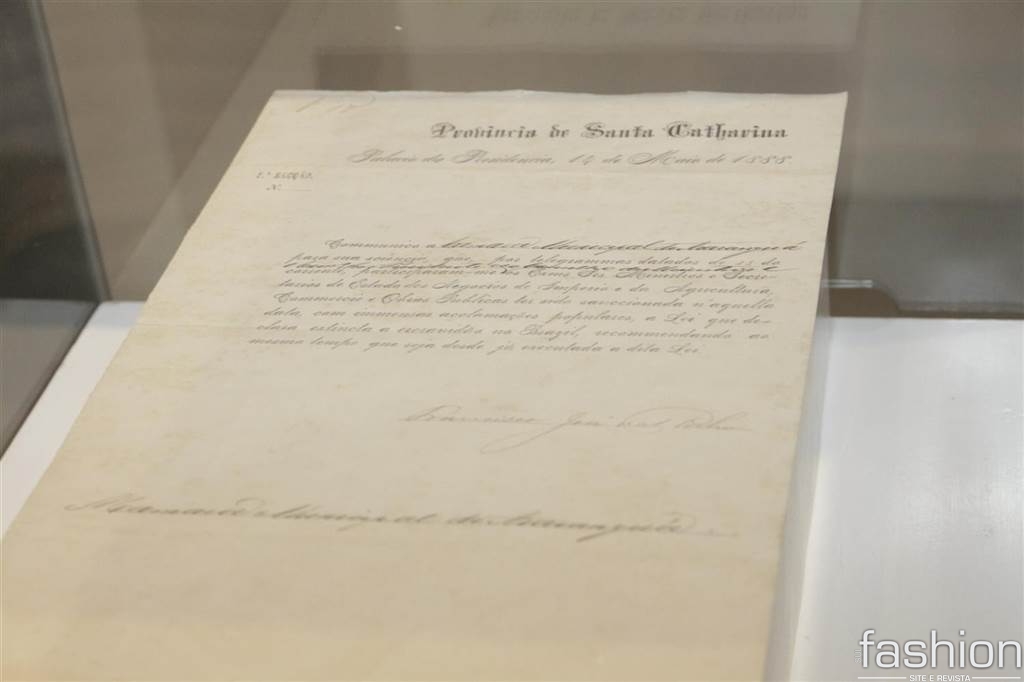 Provincia de Santa Catharina
Palacio da Presidencia, 14 de Maio de 1888.
1.ª SECÇÃO.
N.
Communico a Camara Municipal do Araranguá
para sua sciencia, que, por telegrammas datados de 13 do
corrente, participaram-me os Exms. Srs. Ministros e Secre-
tarios de Estado dos Negocios do Imperio e da Agricultura,
Commercio e Obras Publicas ter sido sanccionada n'aquella
data, com immensas acclamações populares, a Lei que de-
clara extincta a escravidão no Brazil, recommendando ao
mesmo tempo que seja desde já executada a dita Lei.
Francisco José
Camara Municipal do Araranguá
fashion
SITE E REVISTA